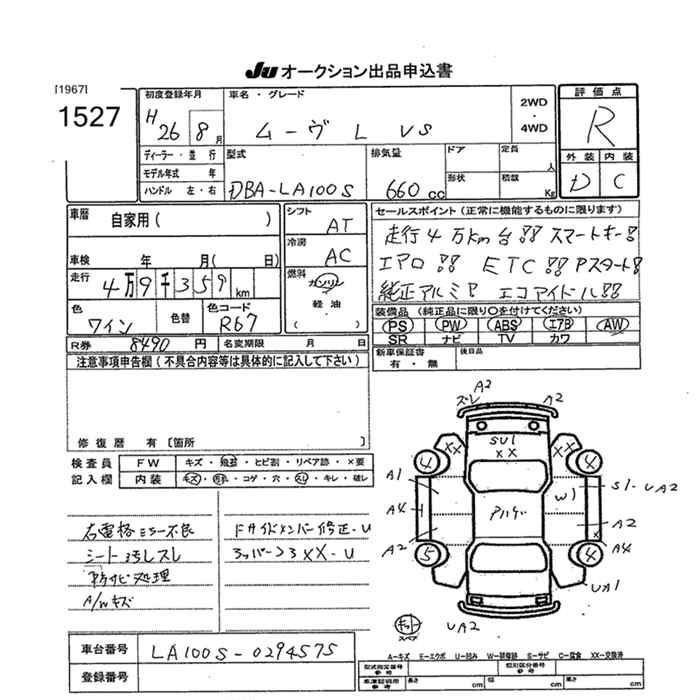 JU オークション出品申込書
[1967]
1527
初度登録年月
H 26 8 月
車名・グレード
ムーヴ L VS
2WD
・
4WD
評価点
R
外装 内装
D C
ディーラー・並行
モデル年式 年
ハンドル 左・右
型式
DBA-LA100S
排気量
660 cc
ドア
形状
定員
人
積載
Kg
車歴
自家用( )
車検 年 月( 日)
走行
4万9千359 km
色
ワイン
色替
色コード
R67
シフト
AT
冷房
AC
燃料
ガソリン
軽油
( )
セールスポイント(正常に機能するものに限ります)
走行4万km台!! スマートキー!!
エアロ!! ETC!! Pスタート!!
純正アルミ!! エコアイドル!!
装備品(純正品に限り○を付けてください)
PS PW ABS エアB AW
SR ナビ TV カワ
新車保証書
有・無
後日品
R券 8490 円 名変期限 月 日
注意事項申告欄(不具合内容等は具体的に記入して下さい)
修復歴 有〔箇所 〕
検査員
記入欄
FW キズ・飛石・ヒビ割・リペア跡・×要
内装 キズ・汚れ・コゲ・穴・スレ・キレ・破レ
右電格ミラー不良
シート汚レスレ
防サビ処理
A/Wキズ
Fサイドメンバー修正-U
ラッパーコアXX-U
A2
ズレ
A2
SU1
XX
XX
XX
4
4
A1
A4
A2
W1
S1-UA2
A2
X
A4
5
4
UA1
UA2
スペア
A-キズ E-エクボ U-凹み W-補修跡 S-サビ C-腐食 XX-交換済
車台番号 LA100S-0294575
登録番号
型式指定番号
参考
類別区分番号
参考
車庫証明用
参考
長さ cm 幅 cm 高さ cm